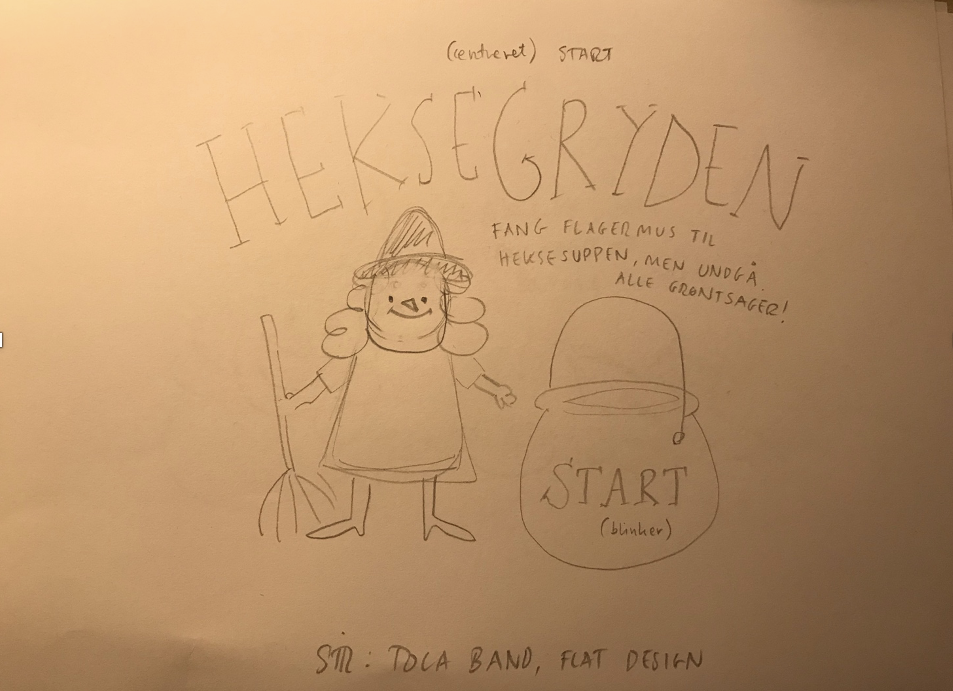 (centreret) START
HEKSEGRYDEN
FANG FLAGERMUS TIL
HEKSESUPPEN, MEN UNDGÅ
ALLE GRØNTSAGER!
START
(blinker)
STIL: TOCA BAND, FLAT DESIGN